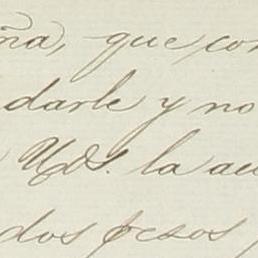 ña, que con
darle y no
Uds. la au
dos pesos